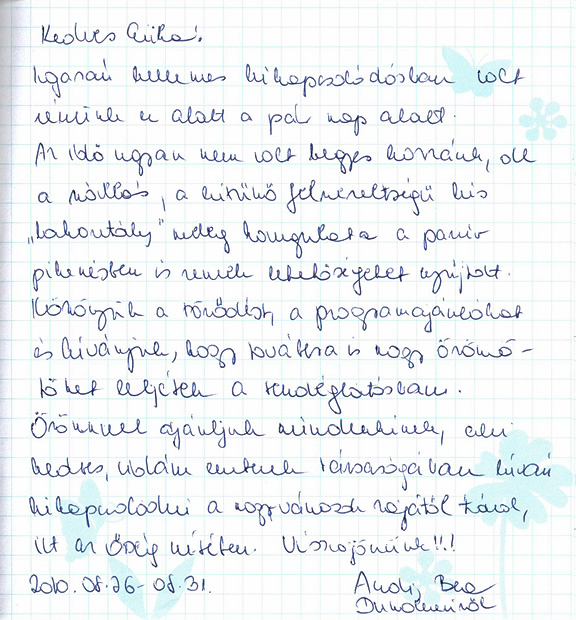 Kedves Csilla!
Igazán kellemes kikapcsolódásban volt
részünk ez alatt a pár nap alatt.
Az idő ugyan nem volt kegyes hozzánk, de
a szállás, a kitűnő felszereltségű kis
meleg hangulata a passzív
pihenésben is remek lehetőségeket nyújtott.
Köszönjük a törődést, a programajánlókat
és kívánjuk, hogy továbbra is nagy örömö-
töket leljétek a vendéglátásban.
Örömmel ajánljuk mindenkinek, aki
kedves, vidám emberek társaságában kíván
kikapcsolódni a nagyvárosok zajától távol,
itt az Őrség szívében. Visszajövünk!!!
2010. 08. 26 - 08. 31.
Andij Bea